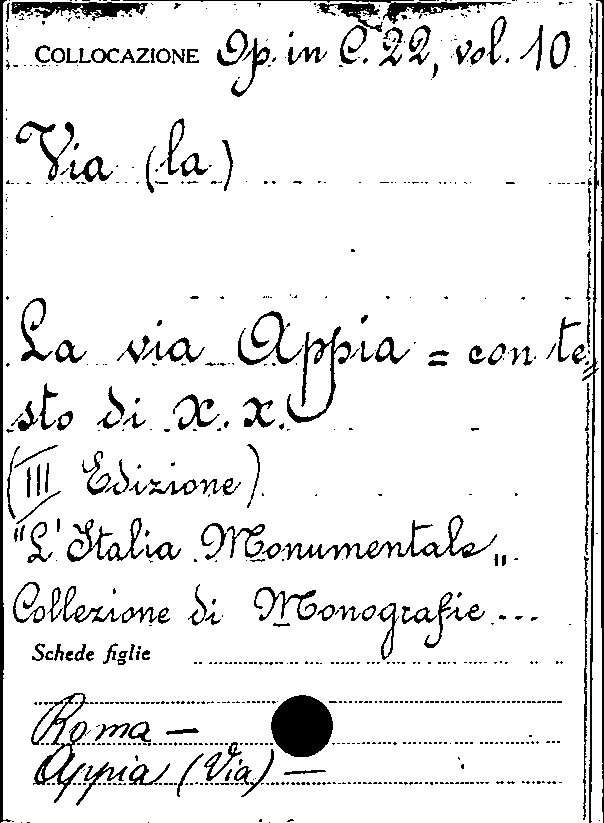 COLLOCAZIONE Op. in C. 22, vol. 10
Via (la)
La via Appia = con te=
sto di X. X.
(III Edizione)
"L'Italia Monumentale„
Collezione di Monografie ...
Schede figlie
Roma —
Appia (Via) —